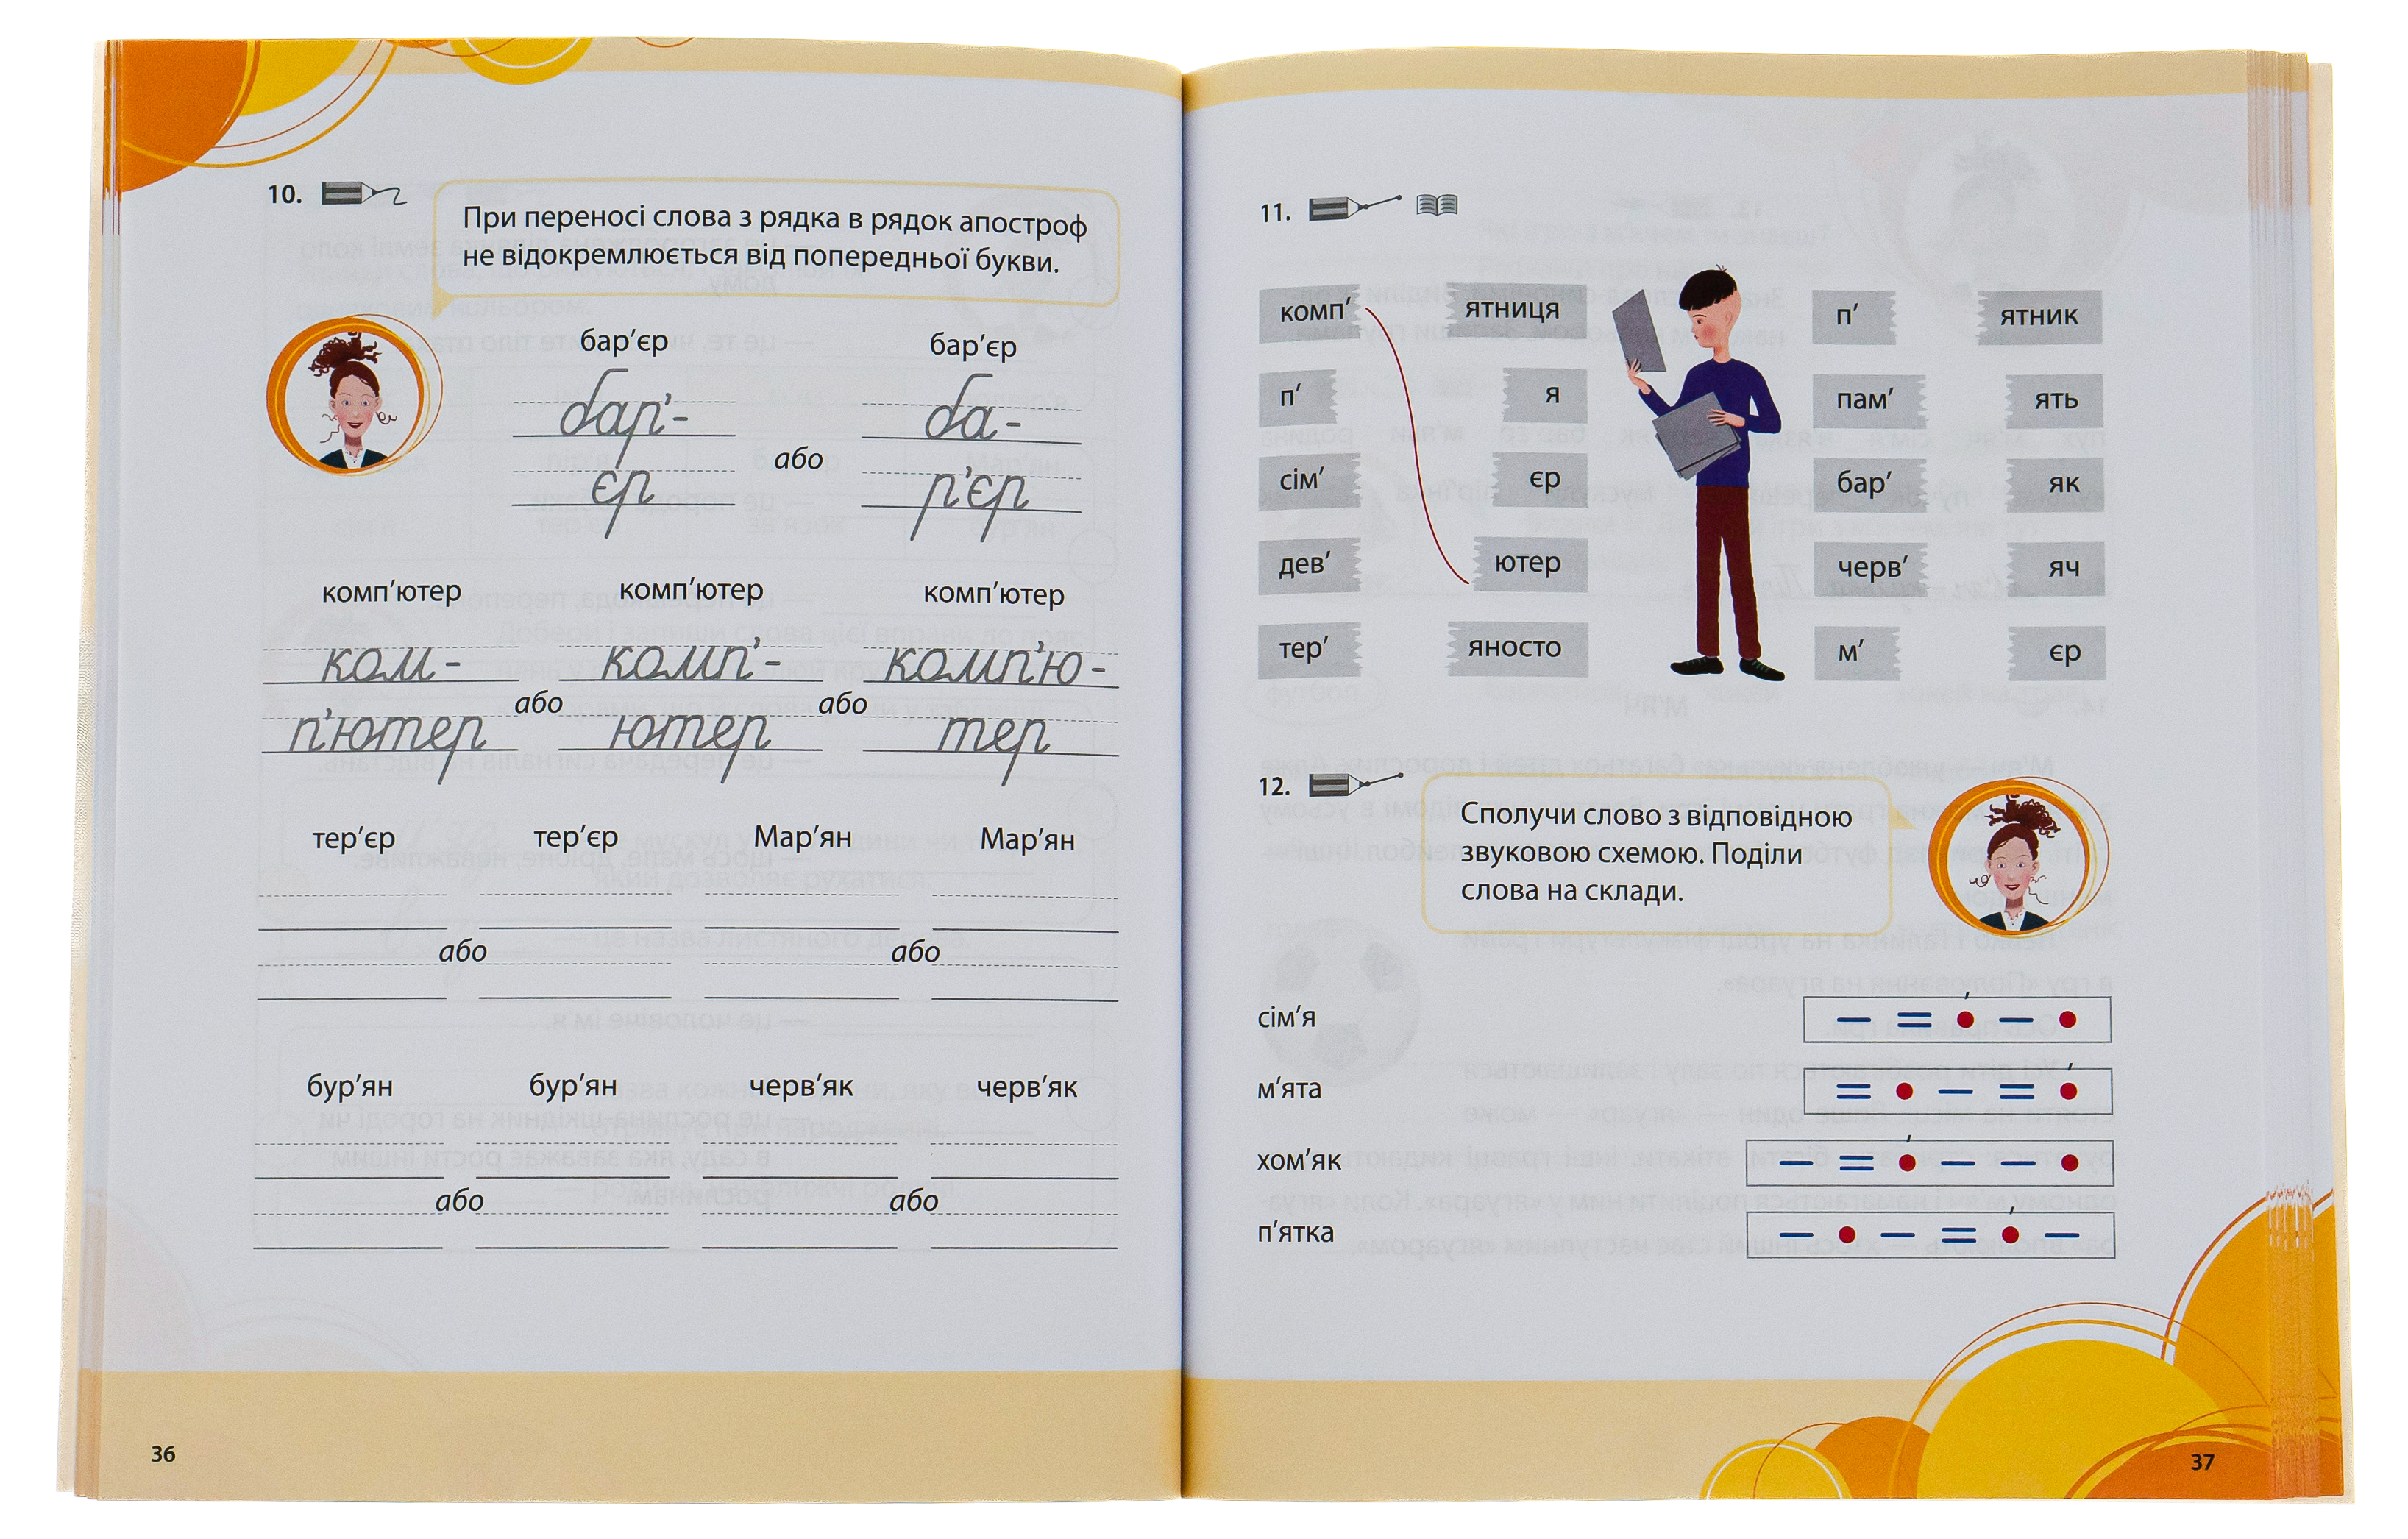 10.
При переносі слова з рядка в рядок апостроф
не відокремлюється від попередньої букви.
бар’єр бар’єр
бар’- ба-
або
єр р’єр
комп’ютер комп’ютер комп’ютер
ком- комп’- комп’ю-
або або
п’ютер ютер тер
тер’єр тер’єр Мар’ян Мар’ян
або або
бур’ян бур’ян черв’як черв’як
або або
36
11.
комп’ ятниця п’ ятник
п’ я пам’ ять
сім’ єр бар’ як
дев’ ютер черв’ яч
тер’ яносто м’ єр
12.
Сполучи слово з відповідною
звуковою схемою. Поділи
слова на склади.
сім’я
м’ята
хом’як
п’ятка
37